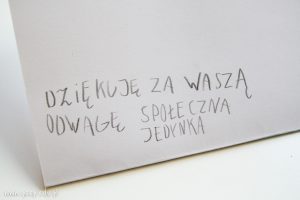 DZIĘKUJĘ ZA WASZĄ
ODWAGĘ SPOŁECZNA
JEDYNKA